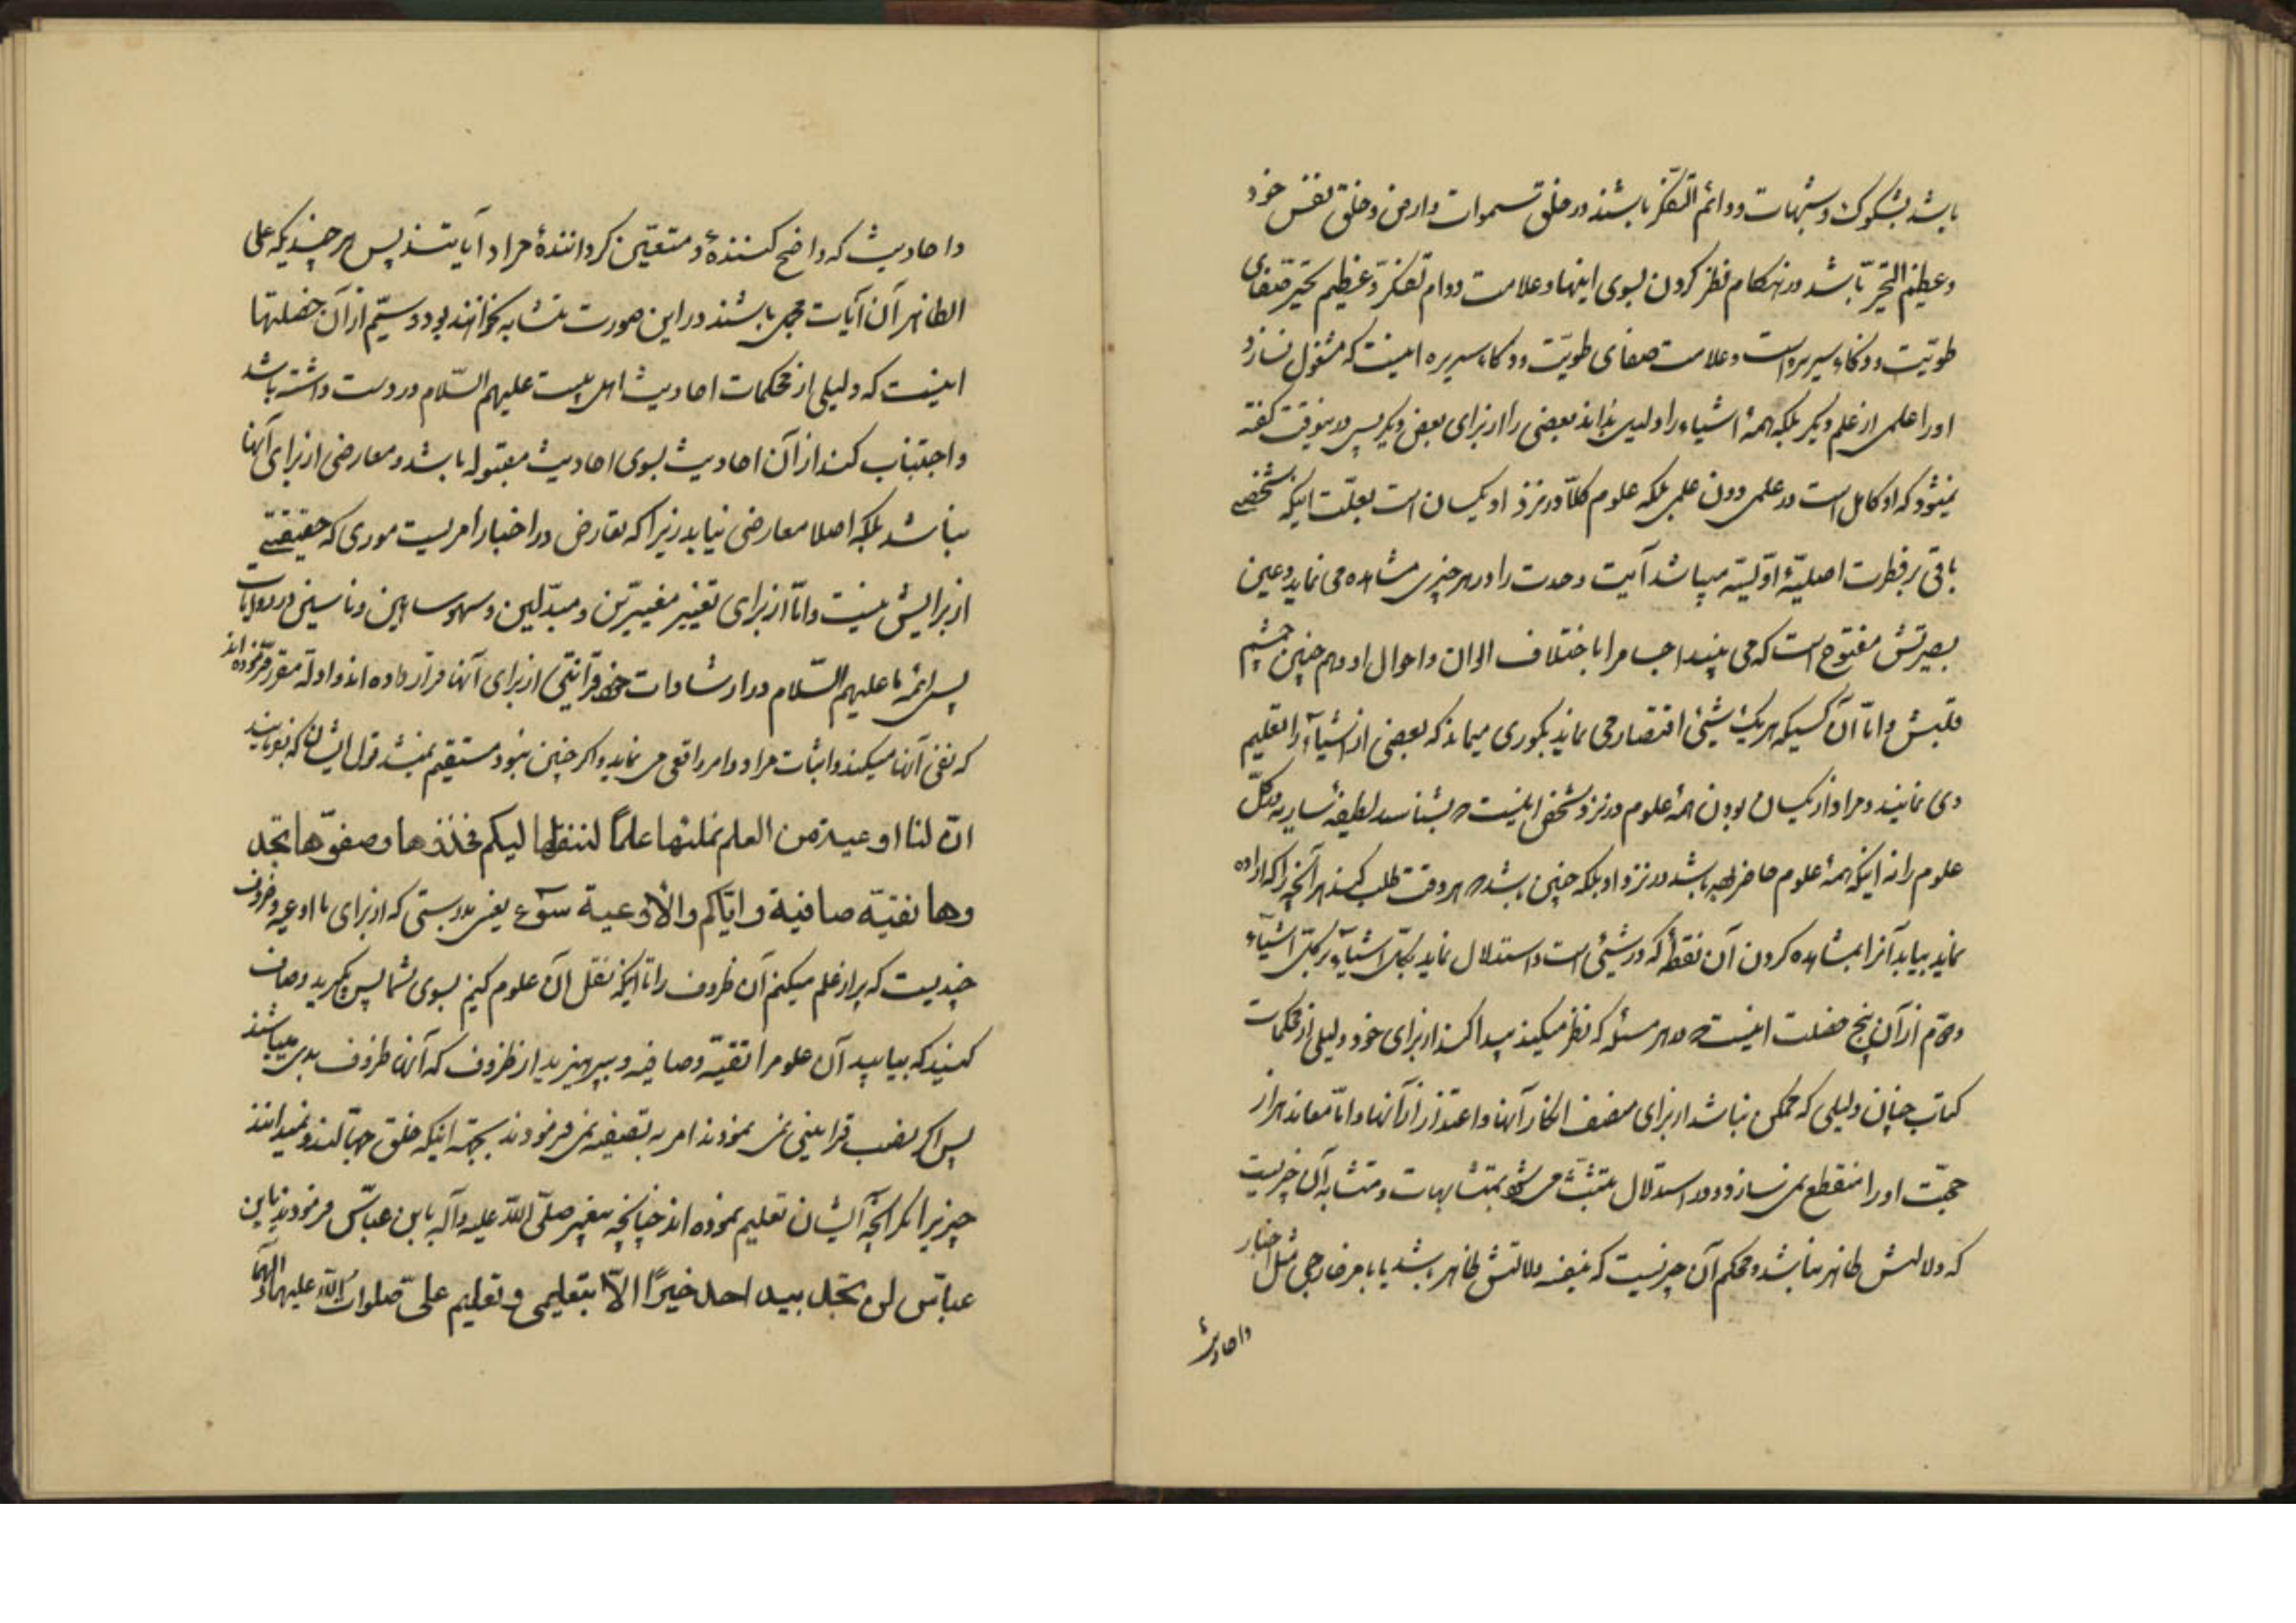 باشد بشکوک و شبهات و دائم التفکر باشند در خلق سموات و ارض و خلق نفس خود
و عظیم التحیر باشد در هنکام نظر کردن بسوی اینها و علامت دوام تفکر و عظیم تحیر صفای
طویت و ذکاء سریره است و علامت صفای طویت و ذکاء سریره اینست که مشغول نسازد
او را علمی از علم دیگر بلکه همهٔ اشیاء را دلیل بداند بعضی را از برای بعض دیگر پس در اینوقت گفته
نمیشود که او کامل است در علمی دون علمی بلکه علوم کلا در نزد او یکسان است بعلت اینکه شخصی
باقی بر فطرت اصلیهٔ اولیه میباشد آیت وحدت را در هر چیزی مشاهده می نماید و عین
بصیرتش مفتوح است که می بیند اجسام را با اختلاف الوان و احوال او و هم چنین چشم
قلبش و اما آن کسیکه بر یک شیئی اقتصار می نماید بکوری میماند که بعضی از اشیآء را تعلیم
وی نمایند و مراد از یکسان بودن همهٔ علوم در نزد شخص اینست که بشناسد لطیفهٔ ساریه در کل
علوم را نه اینکه همهٔ علوم حاضر باشد در نزد او بلکه چنین باشد که هر وقت طلب کند هر آنچه را که اراده
نماید بیابد آنرا بمشاهده کردن آن نقطه که در شیئی است و استدلال نماید بکل اشیآء بر کل اشیآء
دوم از آن پنج خصلت اینست که در هر مسئله که نظر میکند پیدا کند از برای خود دلیلی از محکمات
کتاب چنان دلیلی که ممکن نباشد از برای منصف انکار آنها و اعتذار از آنها و اما معاند هزار
حجت او را منقطع نمی سازد و در استدلال متثبت می شود بمتشابهات و متشابه آن چیزیست
که دلالتش ظاهر نباشد و محکم آن چیزیست که بنفسه دلالتش ظاهر باشد یا با مر خارجی مثل اخبار
و احادیث
و احادیث که واضح کنندهٔ و متعین کردانندهٔ مراد آیاتند پس هر چندیکه علی
الظاهر آن آیات مجمل باشند در این صورت متشابه نخواهند بود و سیم از آن خصلتها
اینست که دلیلی از محکمات احادیث اهل بیت علیهم السلام در دست داشته باشد
و اجتناب کند از آن احادیث بسوی احادیث مقبوله باشد و معارضی از برای آنها
نباشد بلکه اصلا معارضی نیابد زیرا که تعارض در اخبار امریست صوری که حقیقتی
از برایش نیست و اما از برای تغییر مغیرین و مبدلین و سهو ساهین و ناسین در روایات
پس ائمهٔ ما علیهم السلام در ارشادات خود قرائنی از برای آنها قرار داده اند و ادله مقرر فرموده اند
که نفی آنها میکند و اثبات مراد و امر واقعی می نماید و اکر چنین نبود مستقیم نمیشد قول ایشان که بفرمایند
ان لنا اوعیة من العلم نملئها علما لننقلها الیکم فخذوها و صفوها تجد
وها نقیة صافیة و ایاکم والأوعیة سوء یعنی بدرستی که از برای ما اوعیه و ظروف
چندیست که پر از علم میکنیم آن ظروف را تا اینکه نقل آن علوم کنیم بسوی شما پس بکیرید و صاف
کنید که بیابید آن علوم را نقیه و صافیه و بپرهیزید از ظروف که آنها ظروف بدی میباشند
پس اکر نصب قراینی نمی نمودند امر به تصفیه نمی فرمودند بجهة اینکه خلق جهالند و نمیدانند
چیزیرا مکر آنچه ایشان تعلیم نموده اند چنانچه پیغمبر صلی الله علیه و آله بابن عباس فرمودند یابن
عباس لن تجد بید احد خیرا الا بتعلیمی و تعلیم علی صلوات الله علیهما و آلهما